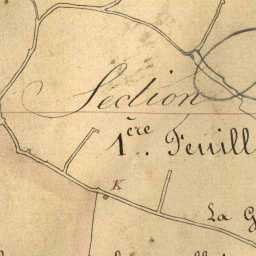 Section
1ère Feuill
K
La G